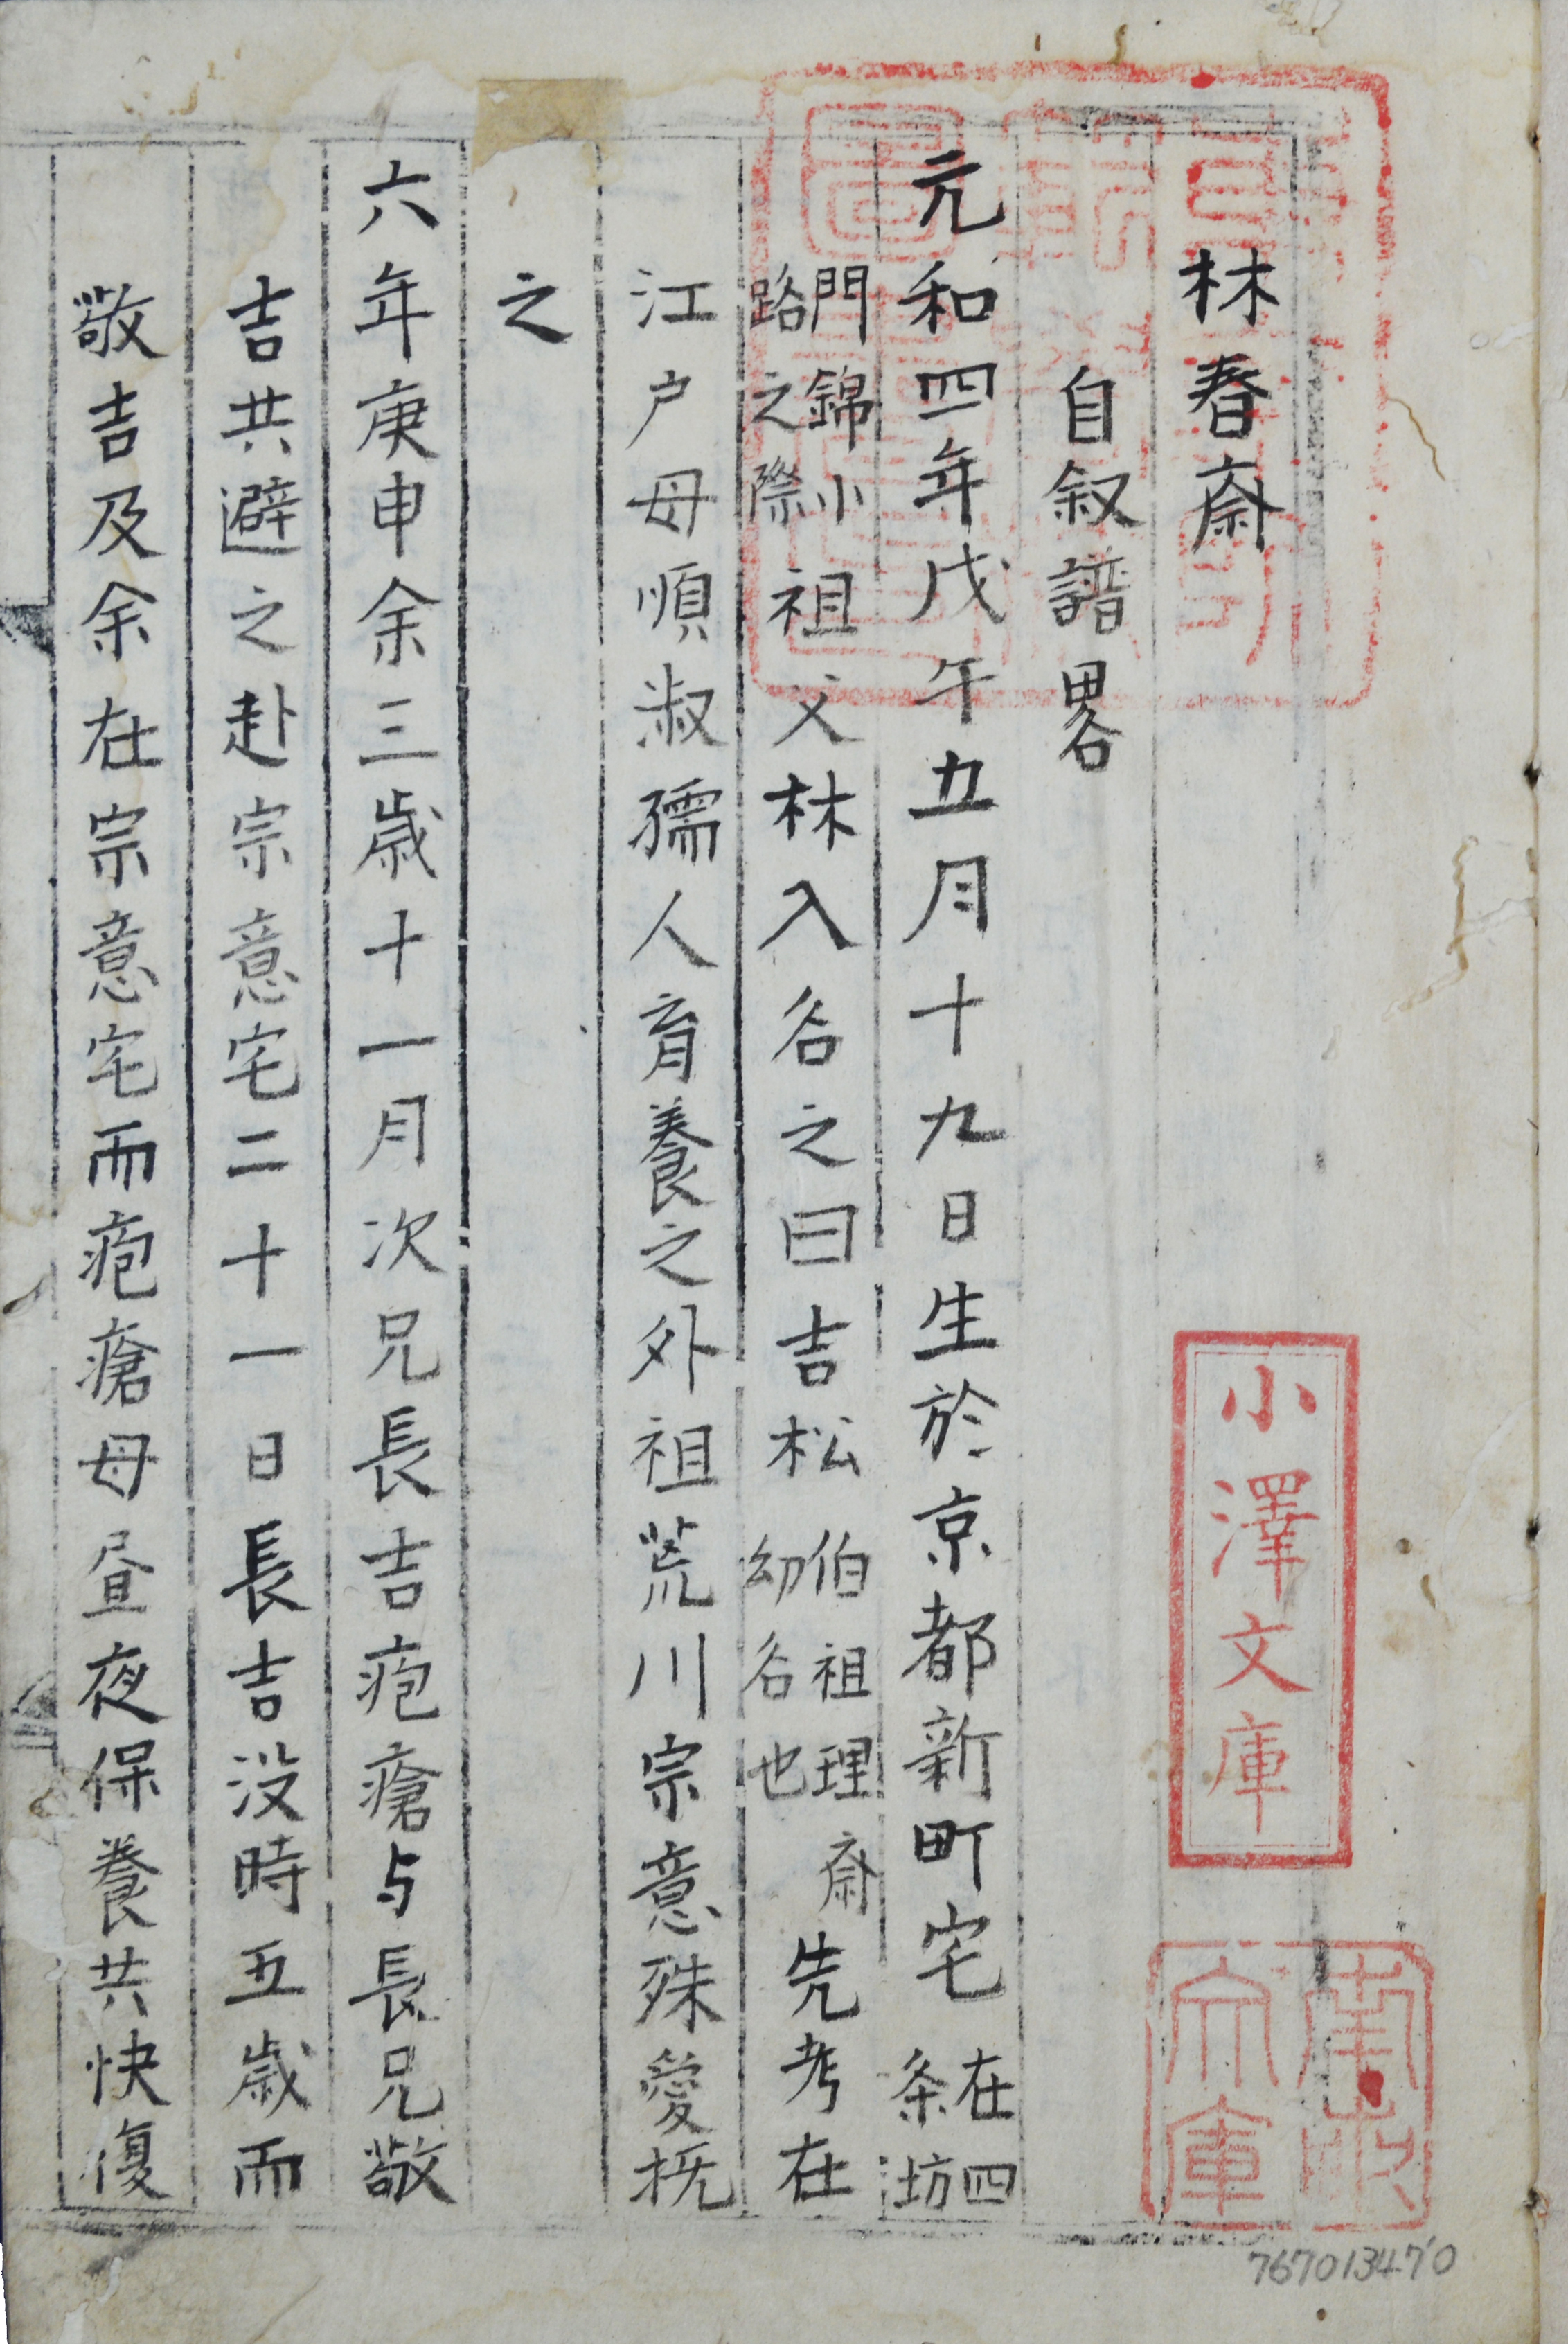 林春齋
自叙譜畧
元和四年戊午五月十九日生於京都新町宅 在四条坊
門錦小路之際 祖父林入名之曰吉松 伯祖理齋幼名也 先考在
江戸母順淑孺人育養之外祖荒川宗意殊愛抚
之
六年庚申余三歳十一月次兄長吉疱瘡与長兄敬
吉共避之赴宗意宅二十一日長吉没時五歳而
敬吉及余在宗意宅而疱瘡母昼夜保養共快復
小澤文庫
文庫
767013470